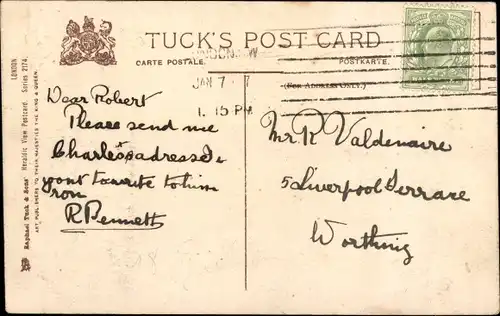 TUCK'S POST CARD
CARTE POSTALE.
POSTKARTE.
(FOR ADDRESS ONLY.)
LONDON. W
JAN 7 7
1. 15 PM
LONDON
Raphael Tuck & Sons' Heraldic View Postcard. Series 2174.
ART PUBLISHERS TO THEIR MAJESTIES THE KING & QUEEN.
Dear Robert
Please send me
Charles's adresse I
want to write to him
from
R Bennett
Mr R Valdenaire
5 Liverpool Terrace
Worthing